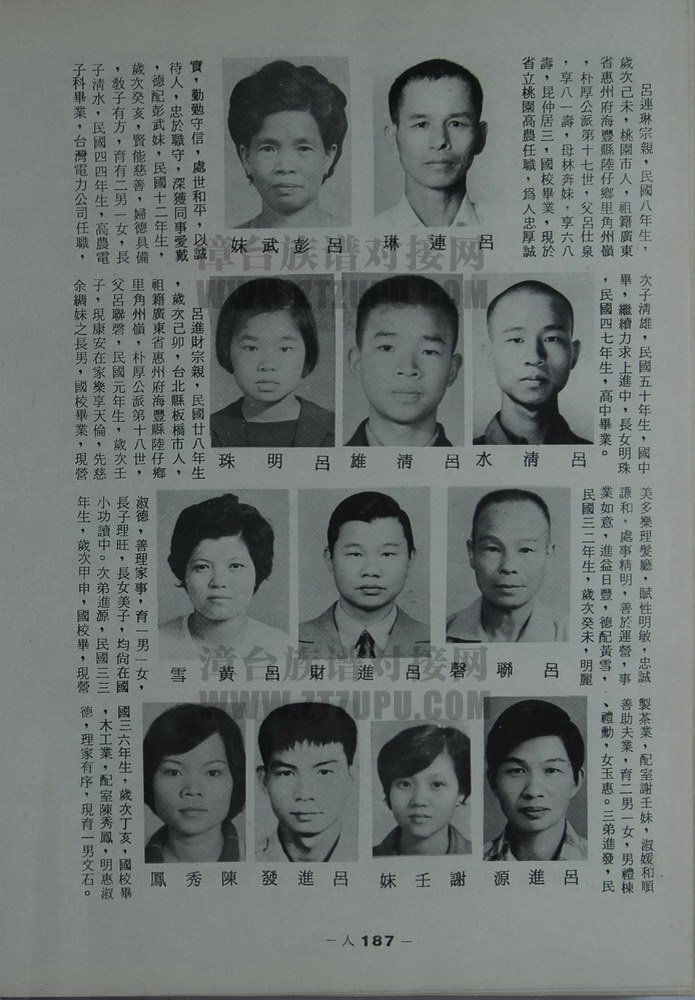 呂連琳宗親，民國八年生，
歲次己未，桃園市人，祖籍廣東
省惠州府海豐縣陸仔鄉里角州嶺
，朴厚公派第十七世，父呂仕泉
，享八一壽，母林奔妹，享六八
壽，昆仲居三，國校畢業，現於
省立桃園高農任職，爲人忠厚誠
呂連琳
呂彭武妹
實，勤勉守信，處世和平，以誠
待人，忠於職守，深獲同事愛戴
，德配彭武妹，民國十二年生，
歲次癸亥，賢能慈善，婦德具備
，敎子有方，育有二男一女，長
子清水，民國四四年生，高農電
子科畢業，台灣電力公司任職，
次子清雄，民國五十年生，國中
畢，繼續力求上進中，長女明珠
，民國四七年生，高中畢業。
呂清水
呂清雄
呂明珠
呂進財宗親，民國廿八年生
，歲次己卯，台北縣板橋市人，
祖籍廣東省惠州府海豐縣陸仔鄉
里角州嶺，朴厚公派第十八世，
父呂聯磬，民國元年生，歲次壬
子，現康安在家樂享天倫，先慈
余綢妹之長男，國校畢業，現營
美多樂理髮廳，賦性明敏，忠誠
謙和，處事精明，善於運營，事
業如意，進益日豐，德配黃雪，
民國三二年生，歲次癸未，明麗
呂聯磬
呂進財
呂黃雪
淑德，善理家事，育一男一女，
長子理旺，長女美子，均尚在國
小功讀中。次弟進源，民國三三
年生，歲次甲申，國校畢，現營
製茶業，配室謝壬妹，淑媛和順
善助夫業，育二男一女，男禮棟
、禮勳，女玉惠。三弟進發，民
呂進源
謝壬妹
呂進發
陳秀鳳
國三六年生，歲次丁亥，國校畢
，木工業，配室陳秀鳳，明惠淑
德，理家有序，現育一男文石。
－人187－
漳台族谱对接网
WWW.ZTZUPU.COM
漳台族谱对接网
WWW.ZTZUPU.COM